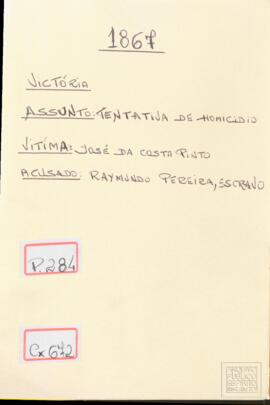 1867
VICTÓRIA
ASSUNTO: TENTATIVA DE HOMICIDIO
VITIMA: JOSÉ DA COSTA PINTO
ACUSADO: RAYMUNDO PEREIRA, ESCRAVO
P. 284
Cx 672
ARQUIVO
PÚBLICO